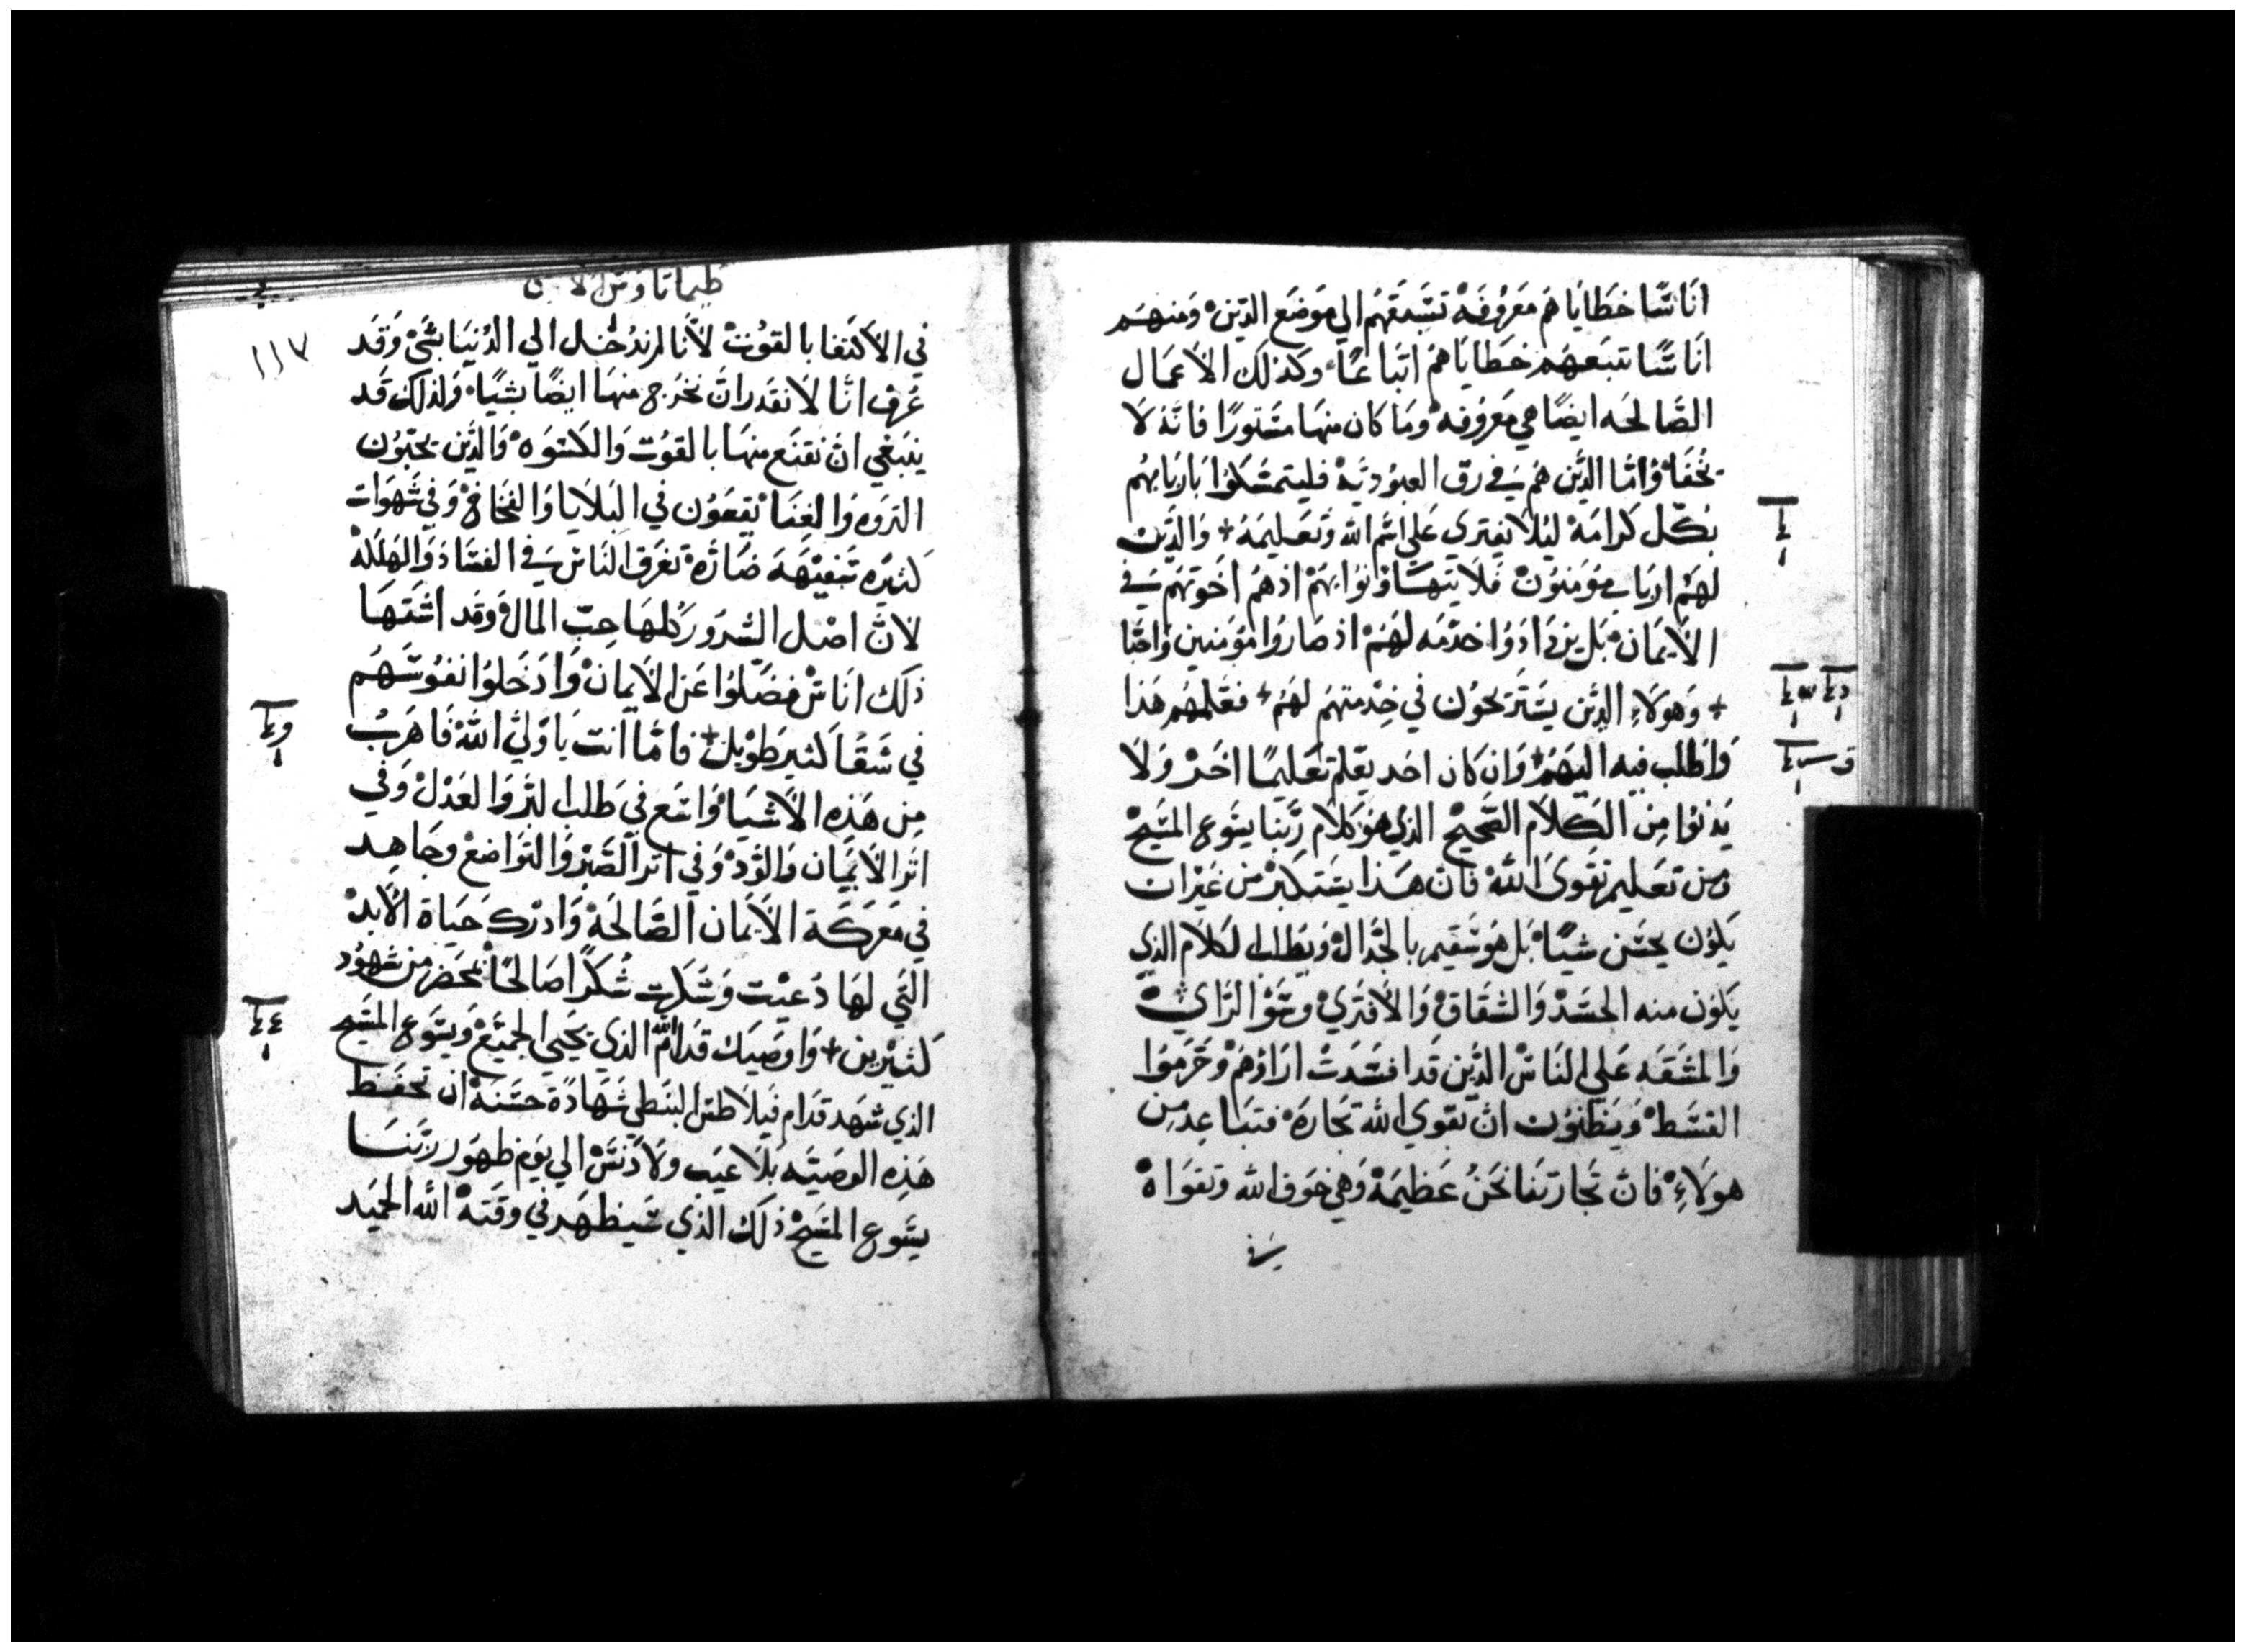 اناسًا خطاياهم معروفة تسبقهم الي موضع الدين ومنهم
اناسًا تتبعهم خطاياهم اتباعًا وكذلك الاعمال
الصالحه ايضًا هي معروفه وما كان منها مستورًا فانه لا
تخفا واما الذين هم في رق العبوديه فليتمسكوا باربابهم
بكل كرامة ليلا يفتري علي اسم الله وتعليمه + والذين
لهم ارباب مومنون فلا يتهاونوا بهم اذ هم اخوتهم في
الايمان بل يزدادوا خدمه لهم اذ صاروا مومنين واحبا
+ وهولاء الذين يستريحون في خدمتهم لهم + فعلمهم هذا
واطلب فيه اليهم وان كان احد يعلم تعليمًا اخر ولا
يدنوا من الكلام الصحيح الذي هو كلام ربنا يسوع المسيح
ومن تعليم تقوى الله فان هذا يستكبر من غير ان
يكون يحسن شيًا بل هو سقيم بالجدال وبطلب الكلام الذي
يكون منه الحسد والشقاق والافتري وسو الراي
والمشقه علي الناس الذين قد افسدت اراوهم وحرموا
القسط ويظنون ان تقوي الله تجارة فتباعد من
هولاء فان تجارتنا نحن عظيمة وهي خوف الله وتقواه
في
طيماتاوس الاولي
١١٧
في الاكتفا بالقوت لانا لم ندخل الي الدنيا بشي وقد
عرف انا لا نقدر ان نخرج منها ايضًا بشيا ولذلك قد
ينبغي ان نقنع منها بالقوت والكسوه والذين يحبون
الثروه والغنا يقعون في البلايا والفخاخ وفي شهوات
كثيره سفيهه ضارة تغرق الناس في الفساد والهلكة
لان اصل الشرور كلها حب المال وقد اشتها
ذلك اناس فضلوا عن الايمان وادخلوا نفوسهم
في شقا كثير طويل + فاما انت يا ولي الله فاهرب
من هذه الاشيا واتبع في طلب البر والعدل وفي
اثر الايمان والود وفي اثر الصبر والتواضع وجاهد
في معركة الايمان الصالحة وادرك حياة الابد
التي لها دعيت وشكرت شكرًا صالحًا بمحضر من شهود
كثيرين + واوصيك قدام الله الذي يحيي الجميع ويسوع المسيح
الذي شهد قدام فيلاطس البنطي شهادة حسنة ان تحفظ
هذه الوصيه بلا عيب ولا دنس الي يوم ظهور ربنا
يسوع المسيح ذلك الذي سيظهر في وقته الله الحميد